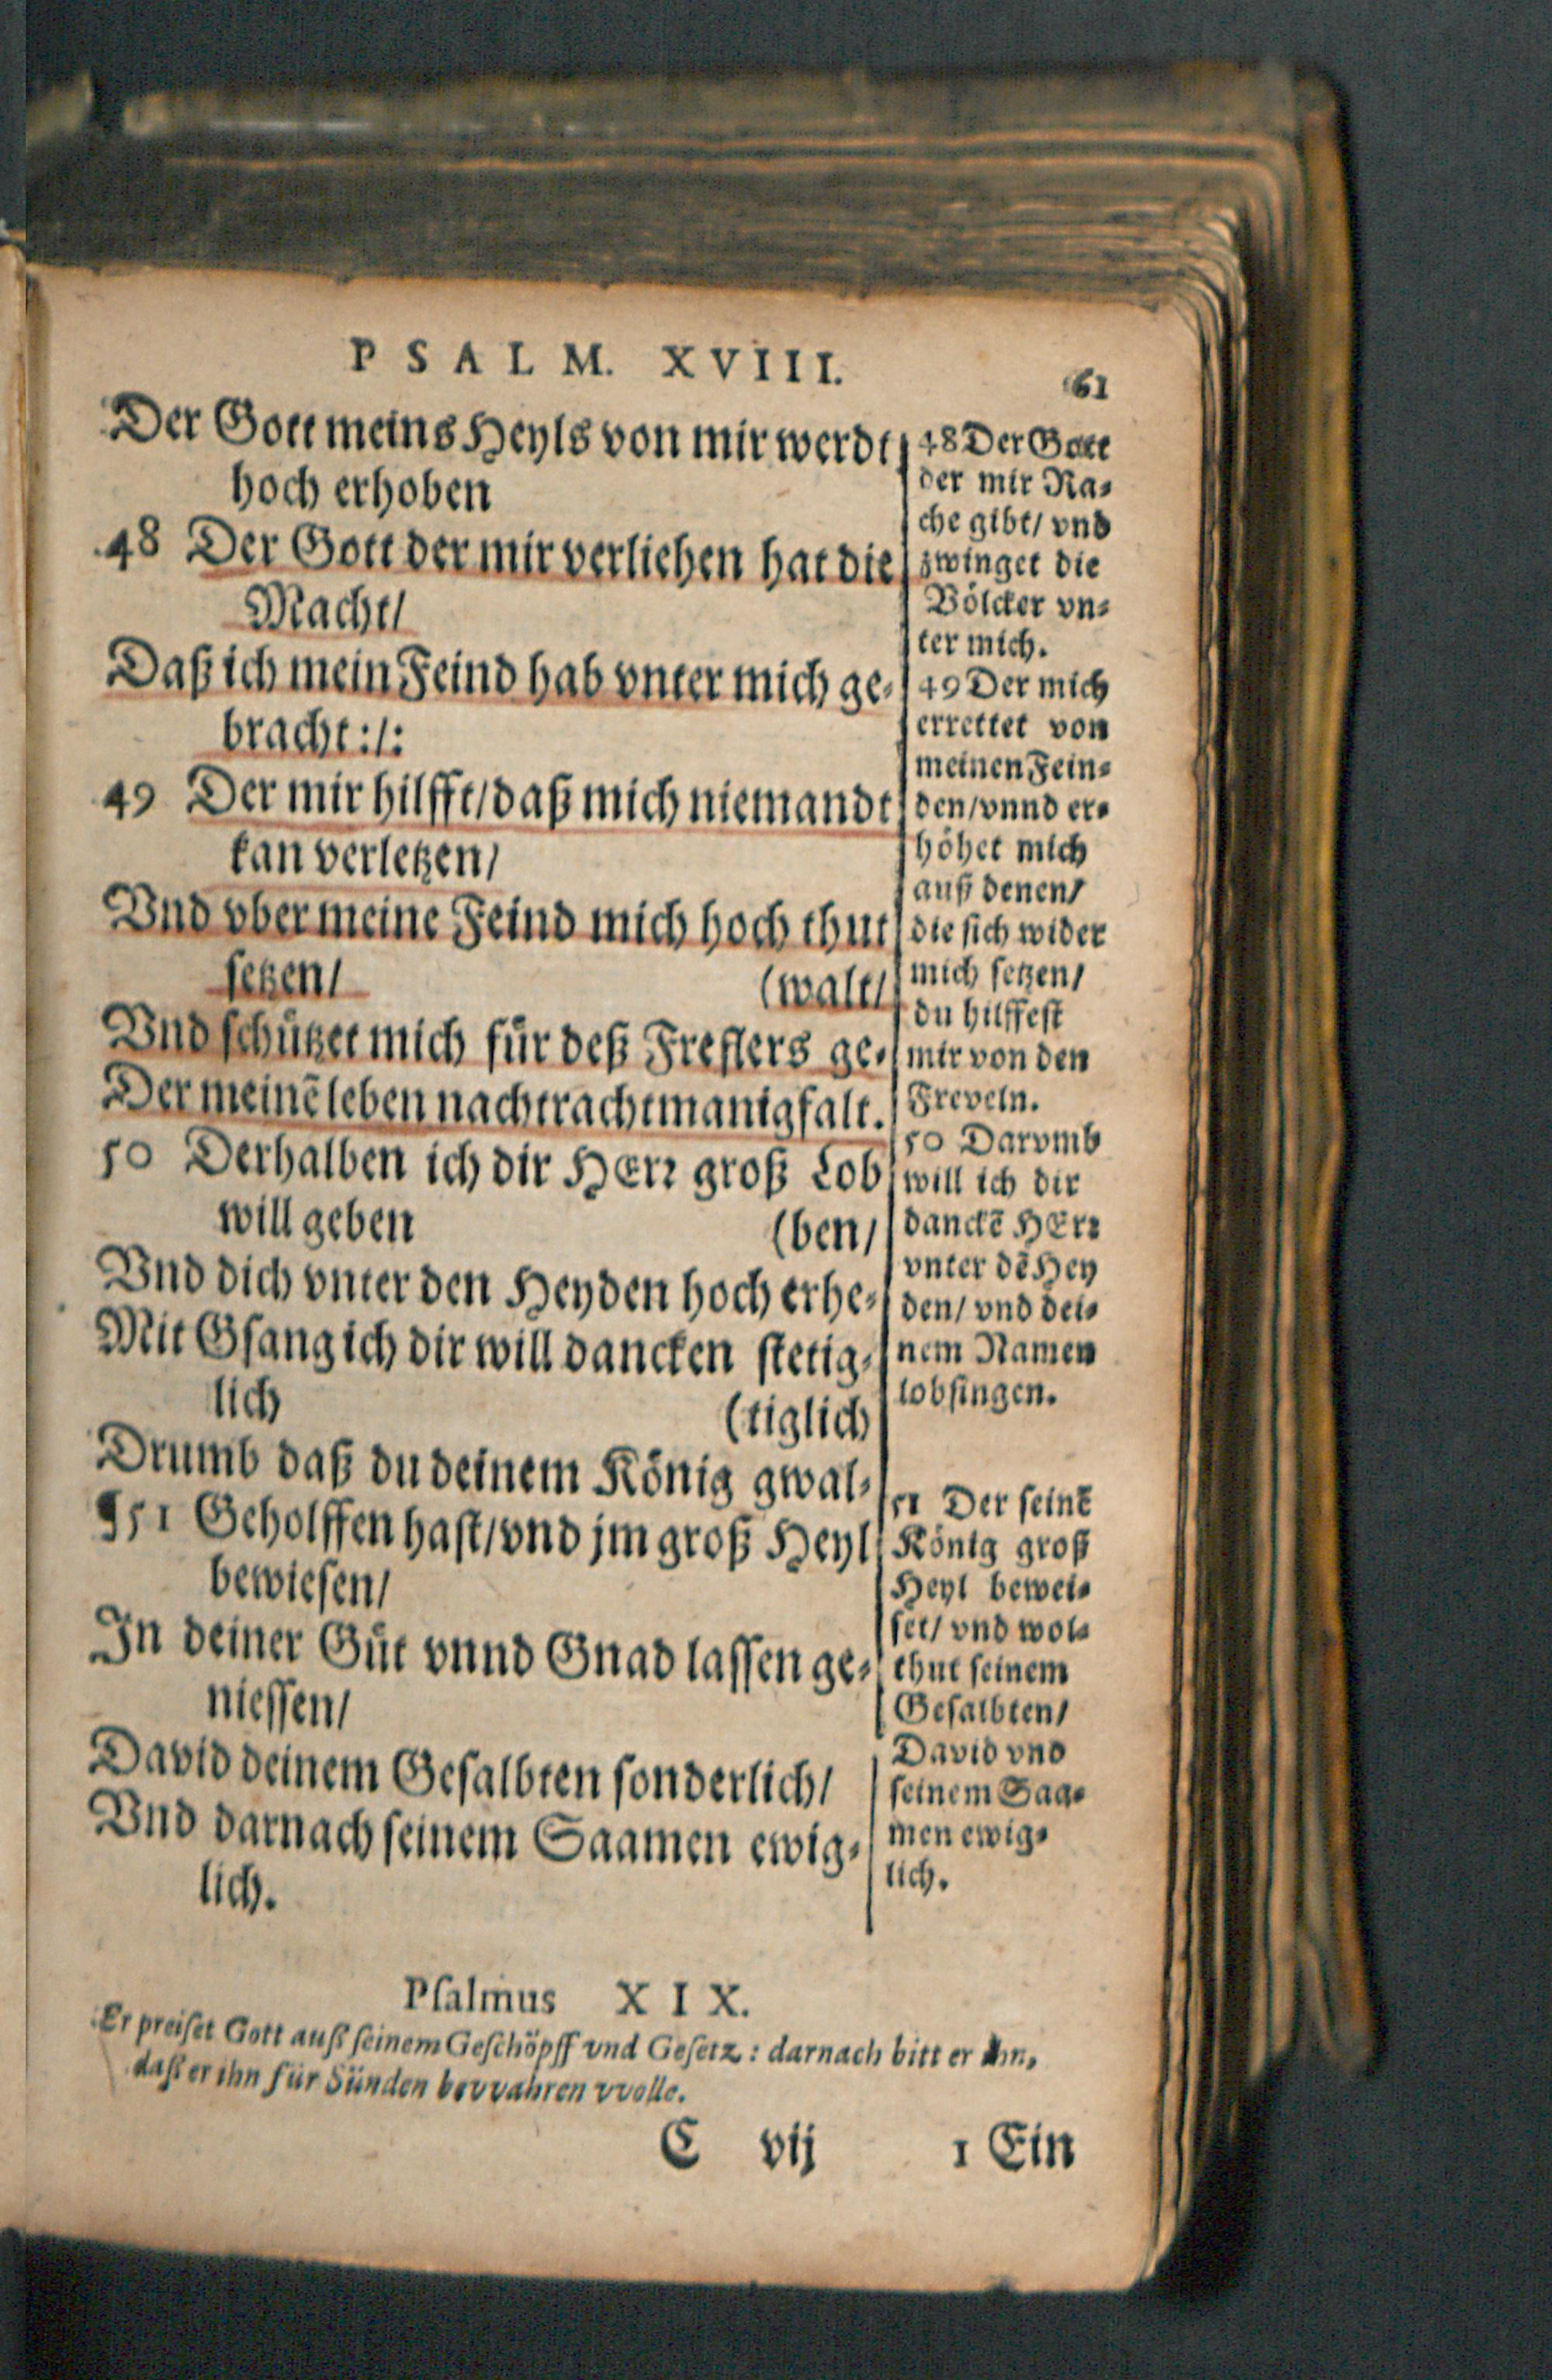 PSALM. XVIII.
61
Der Gott meins Heyls von mir werdt
hoch erhoben
48 Der Gott der mir verliehen hat die
Macht/
Daß ich mein Feind hab vnter mich ge-
bracht:/:
49 Der mir hilfft/daß mich niemandt
kan verletzen/
Vnd vber meine Feind mich hoch thut
setzen/ (walt/
Vnd schützet mich für deß Freflers ge-
Der meinē leben nachtracht manigfalt.
50 Derhalben ich dir HErr groß Lob
will geben (ben/
Vnd dich vnter den Heyden hoch erhe-
Mit Gsang ich dir will dancken stetig-
lich (tiglich
Drumb daß du deinem König gwal-
¶51 Geholffen hast/vnd jm groß Heyl
bewiesen/
In deiner Güt vnnd Gnad lassen ge-
niessen/
David deinem Gesalbten sonderlich/
Vnd darnach seinem Saamen ewig-
lich.
48 Der Gott
der mir Ra-
che gibt/ vnd
zwinget die
Völcker vn-
ter mich.
49 Der mich
errettet von
meinen Fein-
den/vnnd er-
höhet mich
auß denen/
die sich wider
mich setzen/
du hilffest
mir von den
Freveln.
50 Darvmb
will ich dir
danckē HErr
vnter dē Hey
den/ vnd dei-
nem Namen
lobsingen.
51 Der seinē
König groß
Heyl bewei-
set/ vnd wol-
thut seinem
Gesalbten/
David vnd
seinem Saa-
men ewig-
lich.
Psalmus XIX.
Er preiset Gott auß seinem Geschöpff vnd Gesetz: darnach bitt er ihn,
daß er ihn für Sünden bevvahren vvolle.
C vij 1 Ein